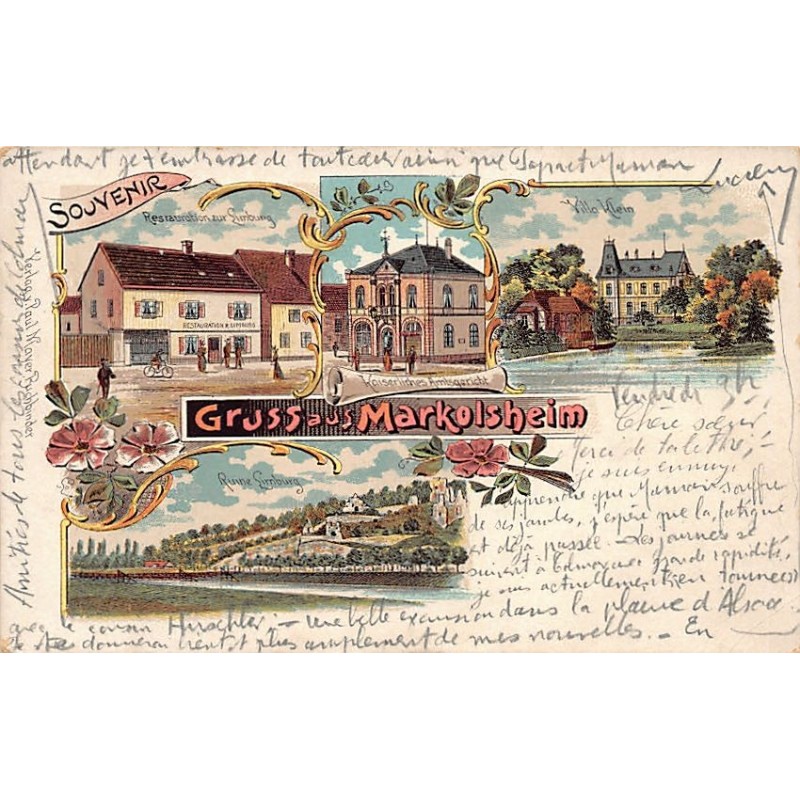 attendant je t'embrasse de tout cœur ainsi que Papa et Maman
Lucien
SOUVENIR
Restauration zur Limburg
Villa Klein
RESTAURATION Z. LIMBURG
Kaiserliches Amtsgericht
Gruss aus Markolsheim
Ruine Limburg
Vendredi 9h
Chère sœur
Merci de ta lettre,
je suis ennuyé
d'apprendre que Maman souffre
de ses jambes, j'espère que la fatigue
est déjà passée. Les journées se
suivent à Colmar avec grande rapidité,
je suis actuellement en tournée
avec le cousin Hirschler, — une belle excursion dans la plaine d'Alsace
Je te donnerai bientôt plus amplement de mes nouvelles. — En
Amitiés de tous les cousins de Colmar
Verlag Paul